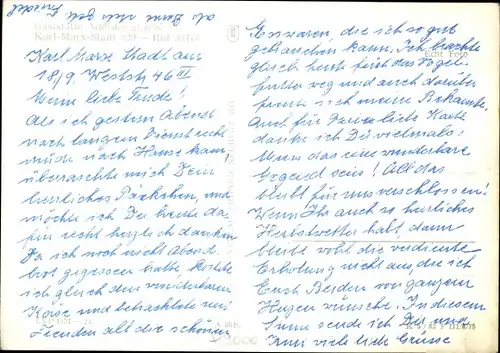 als Eure alte
Gaststätte Adelsbergturm
Karl-Marx-Stadt
Echt Foto
Karl Marx Stadt am
18/9 Weststr. 46 III
Meine liebe Trude!
Als ich gestern Abend
nach langem Dienst recht
müde nach Hause kam,
überraschte mich Dein
herrliches Päckchen, nun
möchte ich Dir heute da-
für recht herzlich danken
Da ich noch nicht Abend
brot gegessen hatte, kostete
ich gleich den wunderbaren
Käse und betrachtete mit
Freuden all die schönen
Esswaren, die ich so gut
gebrauchen kann. Ich brachte
gleich heut früh das Vogel-
futter weg und auch darüber
freute sich meine Bekannte.
Auch für Deine liebe Karte
danke ich Dir vielmals!
Muss das eine wunderbare
Gegend sein! All das
bleibt für uns verschlossen!
Wenn Ihr auch so herrliches
Herbstwetter habt, dann
bleibt wohl die verdiente
Erholung nicht aus, die ich
Euch Beiden von ganzem
Herzen wünsche. In diesem
Sinne sende ich Dir und
viele liebe Grüsse